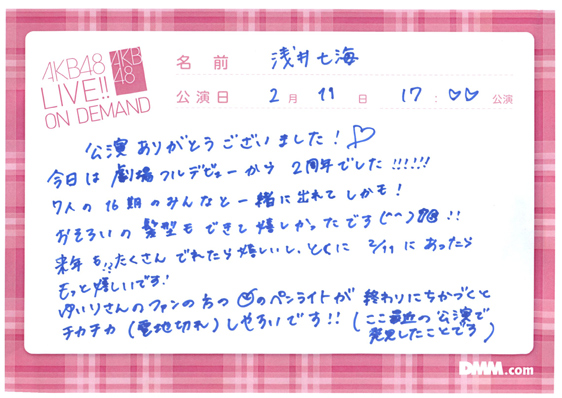 AKB48
LIVE!!
ON DEMAND
AKB
48
名前 浅井七海
公演日 2月11日 17:♡♡公演
公演ありがとうございました！♡
今日は劇場フルデビューから2周年でした!!!!!!
7人の16期のみんなと一緒に出れてしかも！
おそろいの髪型もできて嬉しかったです(^^)!!
来年も!!たくさんでれたら嬉しいし、とくに2/11にあったら
もっと嬉しいです！
ゆいりさんのファンの方の のペンライトが終わりにちかづくと
チカチカ(電地切れ)しやすいです!!(ここ最近の公演で
発見したことです)
DMM.com